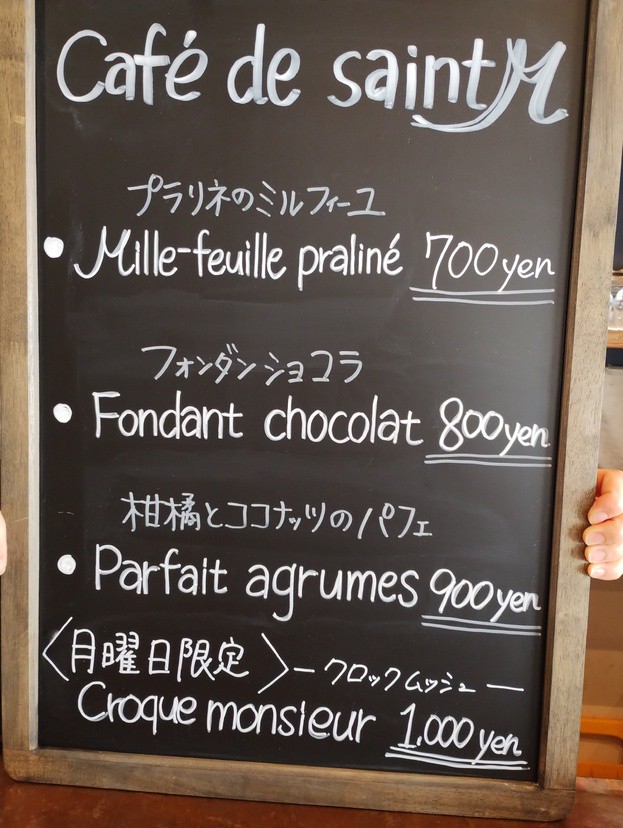 Café de saint M
プラリネのミルフィーユ
Mille-feuille praliné 700yen
フォンダンショコラ
Fondant chocolat 800yen
柑橘とココナッツのパフェ
Parfait agrumes 900yen
〈月曜日限定〉ークロックムッシューー
Croque monsieur 1,000yen